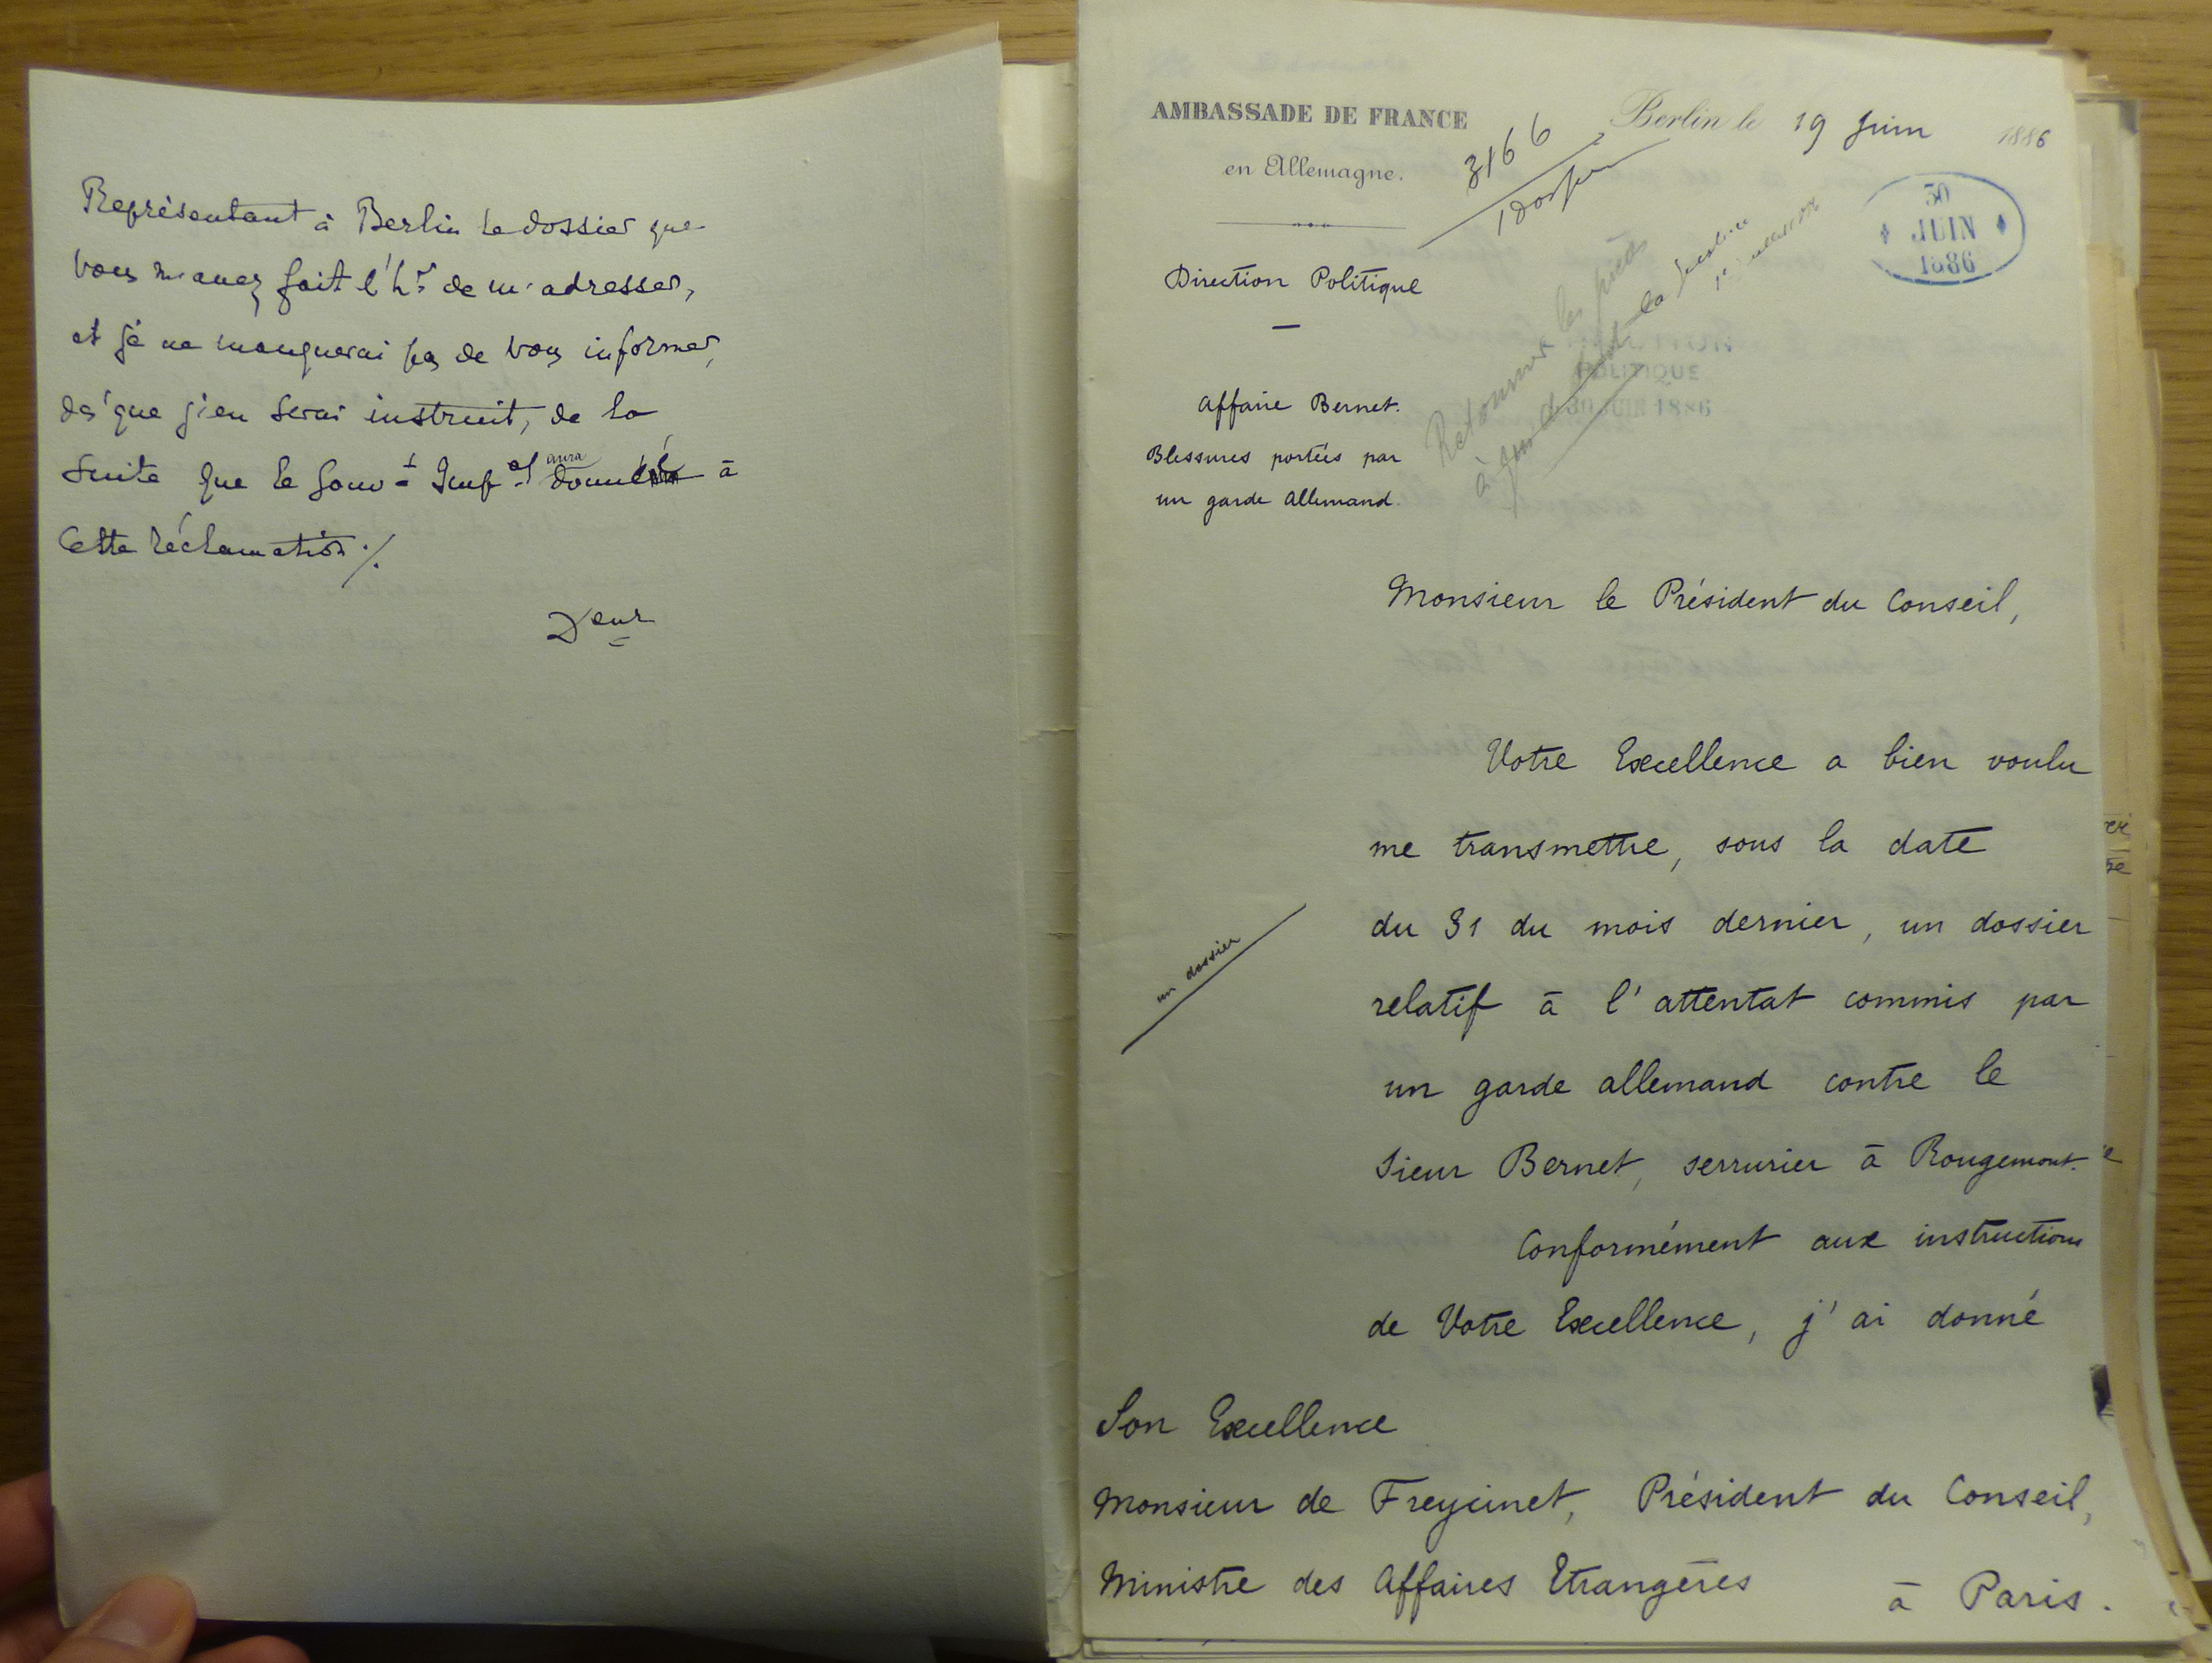 Représentant à Berlin le dossier que
vous m'avez fait l'hr de m'adresser,
et je ne manquerai pas de vous informer,
dès que j'en serai instruit, de la
suite que le Gouvt Impal aura donnée à
cette réclamation ./.
AMBASSADE DE FRANCE
en Allemagne.
Berlin le 19 Juin 1886
3166
1 dossier
30
JUIN
1886
Direction Politique
Retourner les pièces
à la Justice
POLITIQUE
30 JUIN 1886
Affaire Bernet.
Blessures portées par
un garde Allemand.
Monsieur le Président du Conseil,
Votre Excellence a bien voulu
me transmettre, sous la date
du 31 du mois dernier, un dossier
un dossier
relatif à l'attentat commis par
un garde allemand contre le
Sieur Bernet, serrurier à Rougemont.
Conformément aux instructions
de Votre Excellence, j'ai donné
Son Excellence
Monsieur de Freycinet, Président du Conseil,
Ministre des Affaires Etrangères
à Paris.